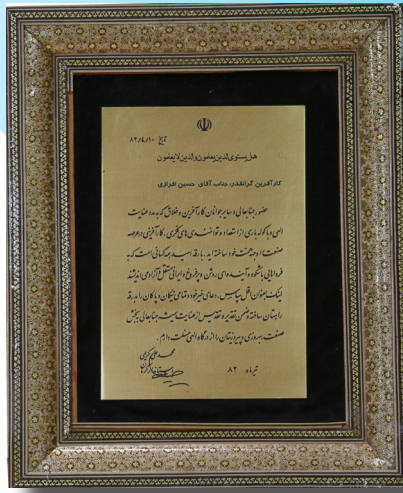 تاریخ ۸۲/۴/۱۰
هل یستوی الذین یعلمون والذین لایعلمون
کارآفرین گرانقدر، جناب آقای حسین افرازی
حضور جنابعالی و سایر جوانان کارآفرین و خلاق که به مدد عنایت
الهی و با کوله باری از استعداد و توانمندی های فکری، کارآفرینی در عرصه
صنعت را وجهه همت خود ساخته اید، بارقه امید همه کسانی است که به
فردایی باشکوه و آینده ای روشن و پرفروغ و ایرانی مستقل و آزاد می اندیشند
اینک بعنوان اقل سپاس، دعای خیر خود و تمامی نیکان و پاکان را بدرقه
راهتان ساخته و ضمن تقدیر و تقدیس از عنایت جنابعالی به بخش
صنعت، بهروزی و پیروزیتان را از درگاه الهی مسئلت دارم.
محمد علی کریمی
تیرماه ۸۲